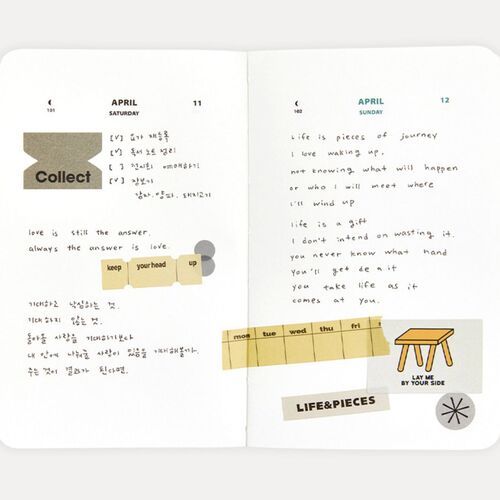 101
APRIL
11
SATURDAY
Collect
[v] 요가 재등록
[v] 독서 노트 정리
[ ] 전시회 예매하기
[v] 장보기
양파, 돼지고기
love is still the answer.
always the answer is love.
keep your head up
기대하고 낙심하는 것.
기대하지 않는 것.
돌아올 사랑을 기대하기보다
내 안에 나눠줄 사랑이 있음을 기대해볼까.
주는 것이 결과가 된다면.
102
APRIL
12
SUNDAY
Life is pieces of journey
I love waking up,
not knowing what will happen
or who I will meet where
i'll wind up
life is a gift
I don't intend on wasting it.
you never know what hand
you'll get de a it
you take life as it
comes at you.
mon tue wed thu fri
LAY ME
BY YOUR SIDE
LIFE&PIECES